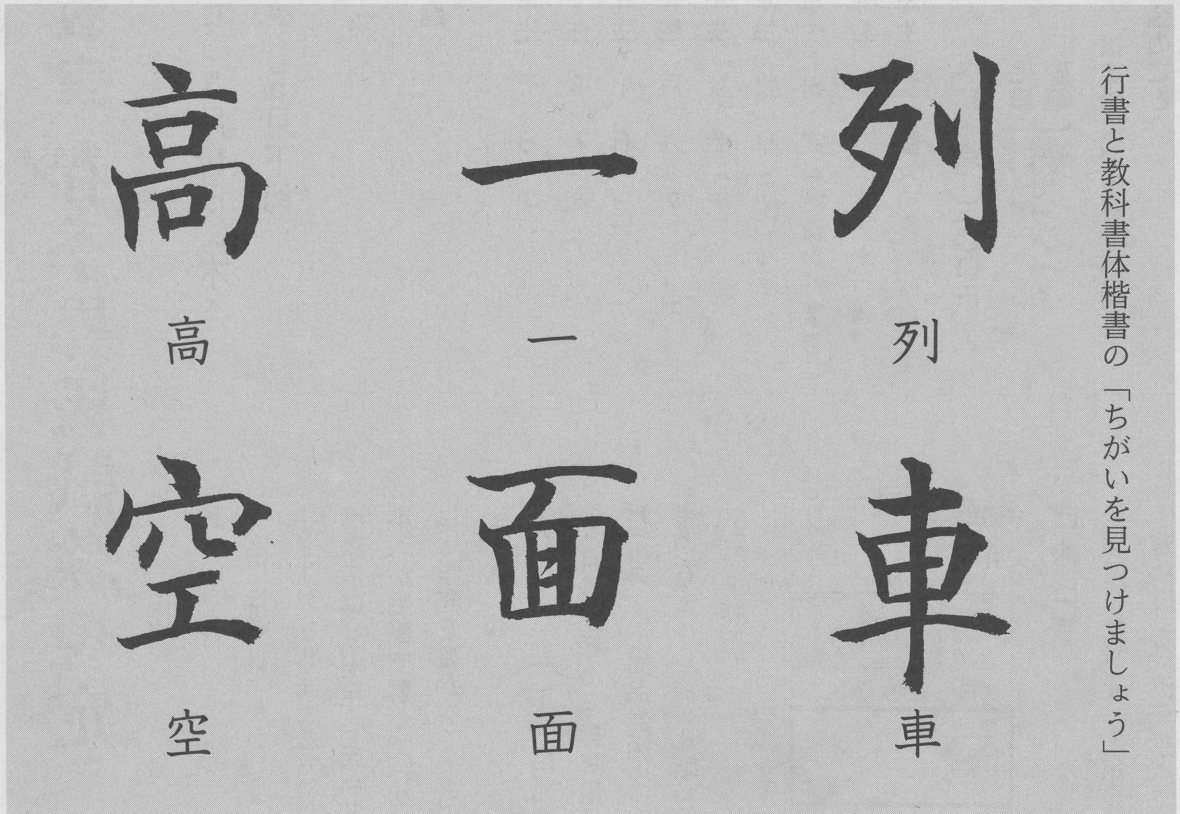 行書と教科書体楷書の「ちがいを見つけましょう」
列
列
車
車
一
一
面
面
高
高
空
空